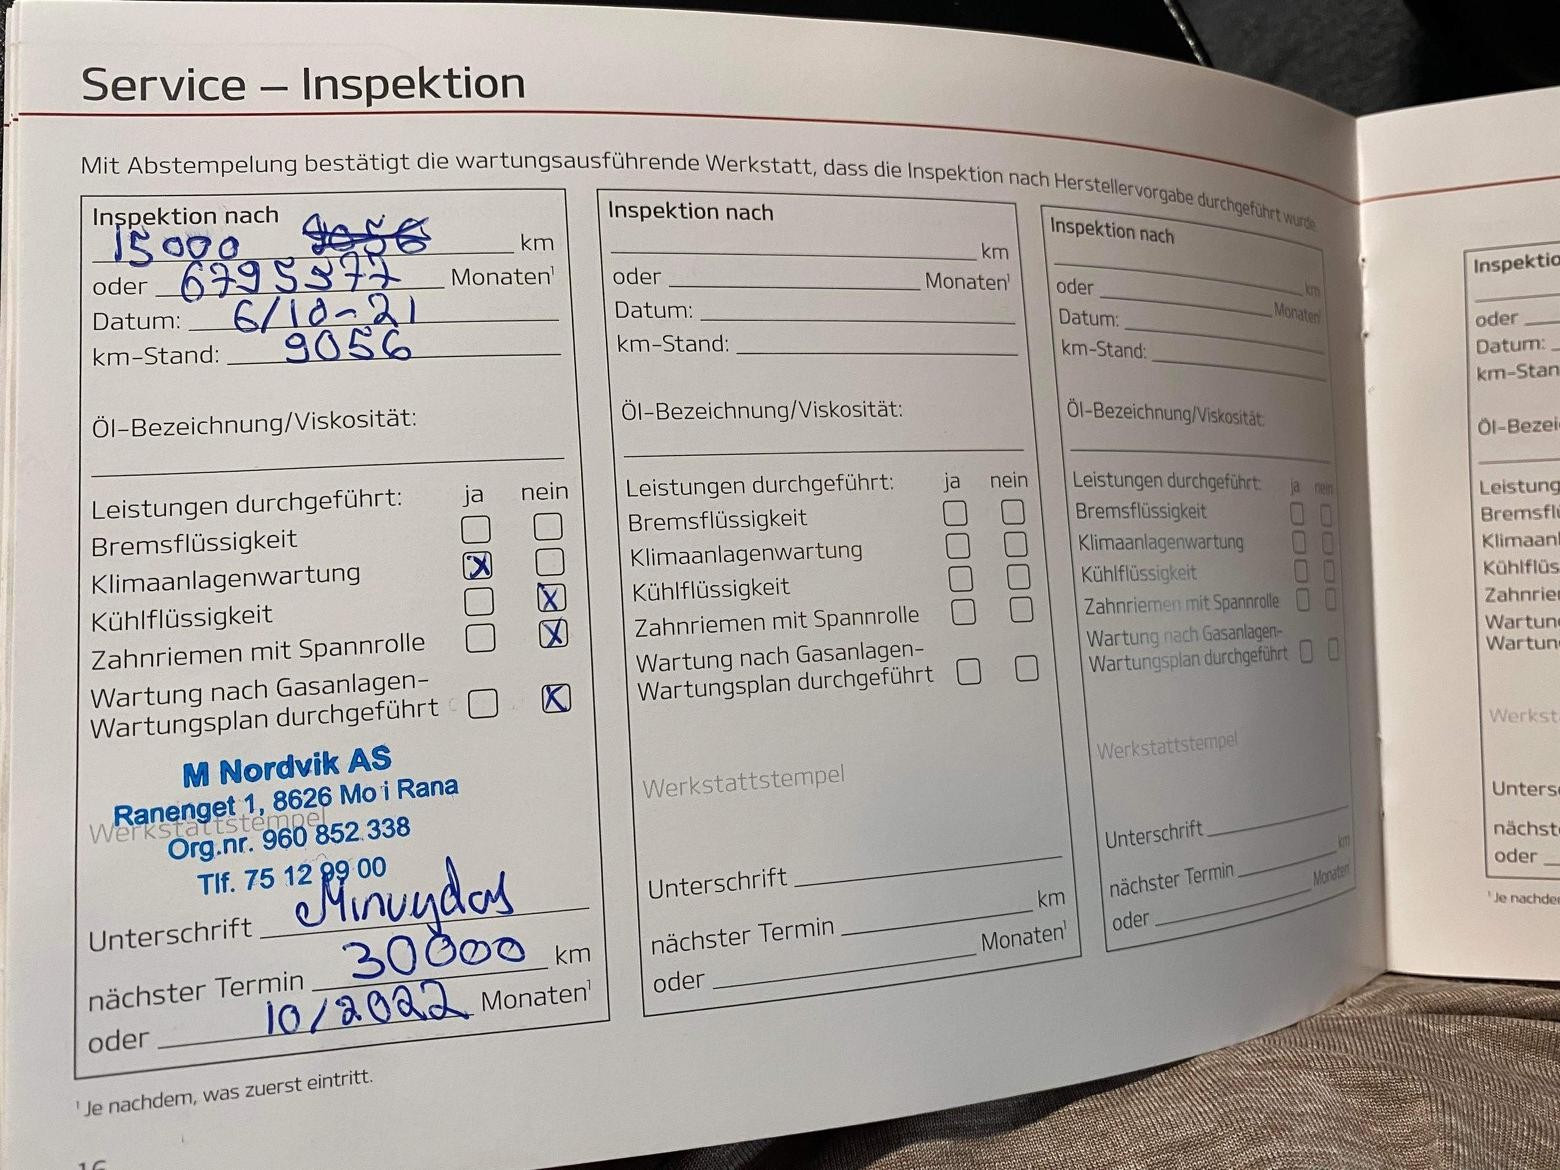 Service – Inspektion
Mit Abstempelung bestätigt die wartungsausführende Werkstatt, dass die Inspektion nach Herstellervorgabe durchgeführt wurde.
Inspektion nach
15000 9056 km
oder 6795377 Monaten¹
Datum: 6/10-21
km-Stand: 9056
Öl-Bezeichnung/Viskosität:
Leistungen durchgeführt: ja nein
Bremsflüssigkeit
Klimaanlagenwartung X
Kühlflüssigkeit X
Zahnriemen mit Spannrolle X
Wartung nach Gasanlagen-
Wartungsplan durchgeführt X
M Nordvik AS
Ranenget 1, 8626 Mo i Rana
Werkstattstempel
Org.nr. 960 852 338
Tlf. 75 12 99 00
Unterschrift
nächster Termin 30000 km
oder 10/2022 Monaten¹
¹ Je nachdem, was zuerst eintritt.
16
Inspektion nach
km
oder Monaten¹
Datum:
km-Stand:
Öl-Bezeichnung/Viskosität:
Leistungen durchgeführt: ja nein
Bremsflüssigkeit
Klimaanlagenwartung
Kühlflüssigkeit
Zahnriemen mit Spannrolle
Wartung nach Gasanlagen-
Wartungsplan durchgeführt
Werkstattstempel
Unterschrift
nächster Termin km
oder Monaten¹
Inspektion nach
km
oder Monaten¹
Datum:
km-Stand:
Öl-Bezeichnung/Viskosität:
Leistungen durchgeführt: ja nein
Bremsflüssigkeit
Klimaanlagenwartung
Kühlflüssigkeit
Zahnriemen mit Spannrolle
Wartung nach Gasanlagen-
Wartungsplan durchgeführt
Werkstattstempel
Unterschrift
nächster Termin km
oder Monaten¹
Inspektio
oder
Datum:
km-Stan
Öl-Bezei
Leistung
Bremsflü
Klimaanl
Kühlflüs
Zahnrie
Wartun
Wartun
Werkst
Unters
nächst
oder
¹ Je nachde